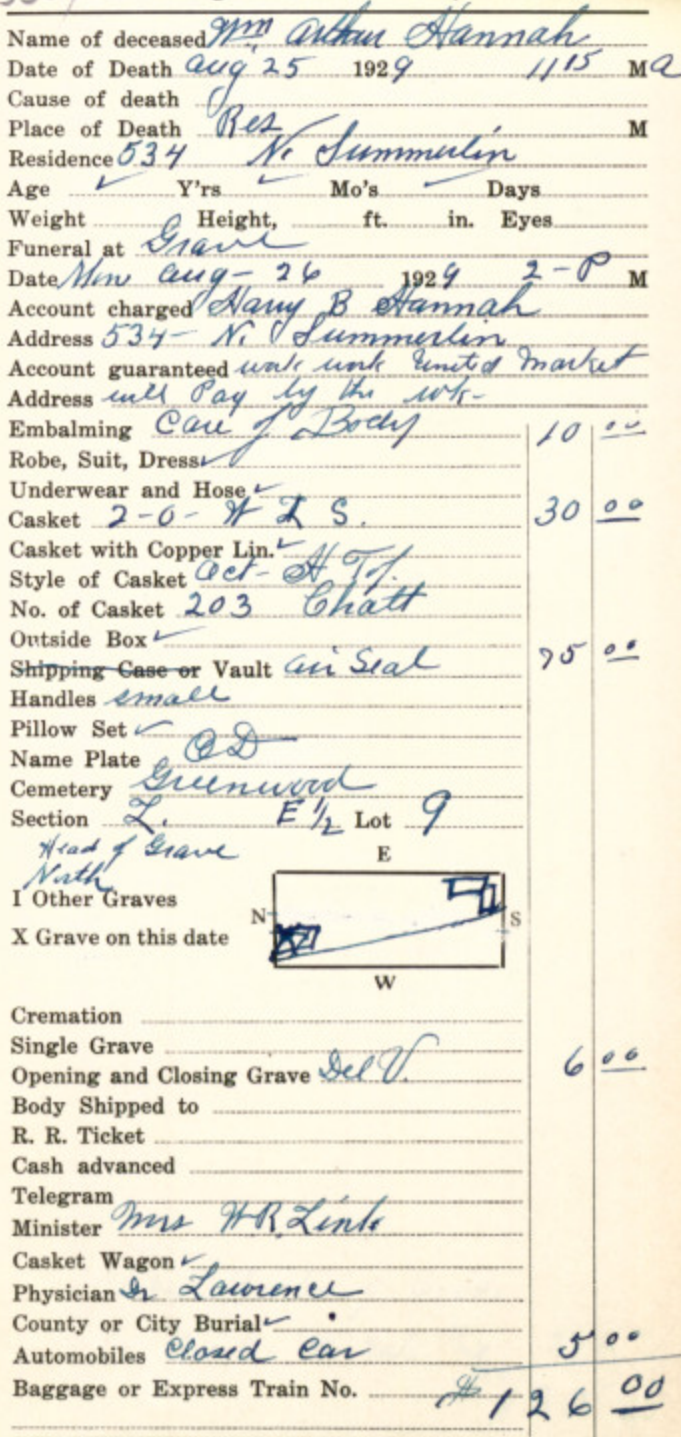 Name of deceased Wm Arthur Hannah
Date of Death Aug 25 1929 11 15 M a
Cause of death
Place of Death Res M
Residence 534 N. Summerlin
Age ✓ Y'rs ✓ Mo's ✓ Days
Weight Height, ft. in. Eyes
Funeral at Grave
Date Mon Aug - 26 1929 2 - P M
Account charged Harry B Hannah
Address 534 - N. Summerlin
Account guaranteed work United Market
Address will Pay by the wk -
Embalming Care of Body 10 00
Robe, Suit, Dress ✓
Underwear and Hose ✓
Casket 2-0- W S. 30 00
Casket with Copper Lin. ✓
Style of Casket Oct -
No. of Casket 203 Chatt
Outside Box ✓
Shipping Case or Vault air Seal 75 00
Handles small
Pillow Set ✓
Name Plate OD
Cemetery Greenwood
Section L. E 1/2 Lot 9
Head of Grave
North
E
I Other Graves
N S
X Grave on this date
W
Cremation
Single Grave
Opening and Closing Grave Del V. 6 00
Body Shipped to
R. R. Ticket
Cash advanced
Telegram
Minister Mrs H.R. Link
Casket Wagon ✓
Physician Dr Lawrence
County or City Burial ✓
Automobiles Closed Car 5 00
Baggage or Express Train No. $ 126 00